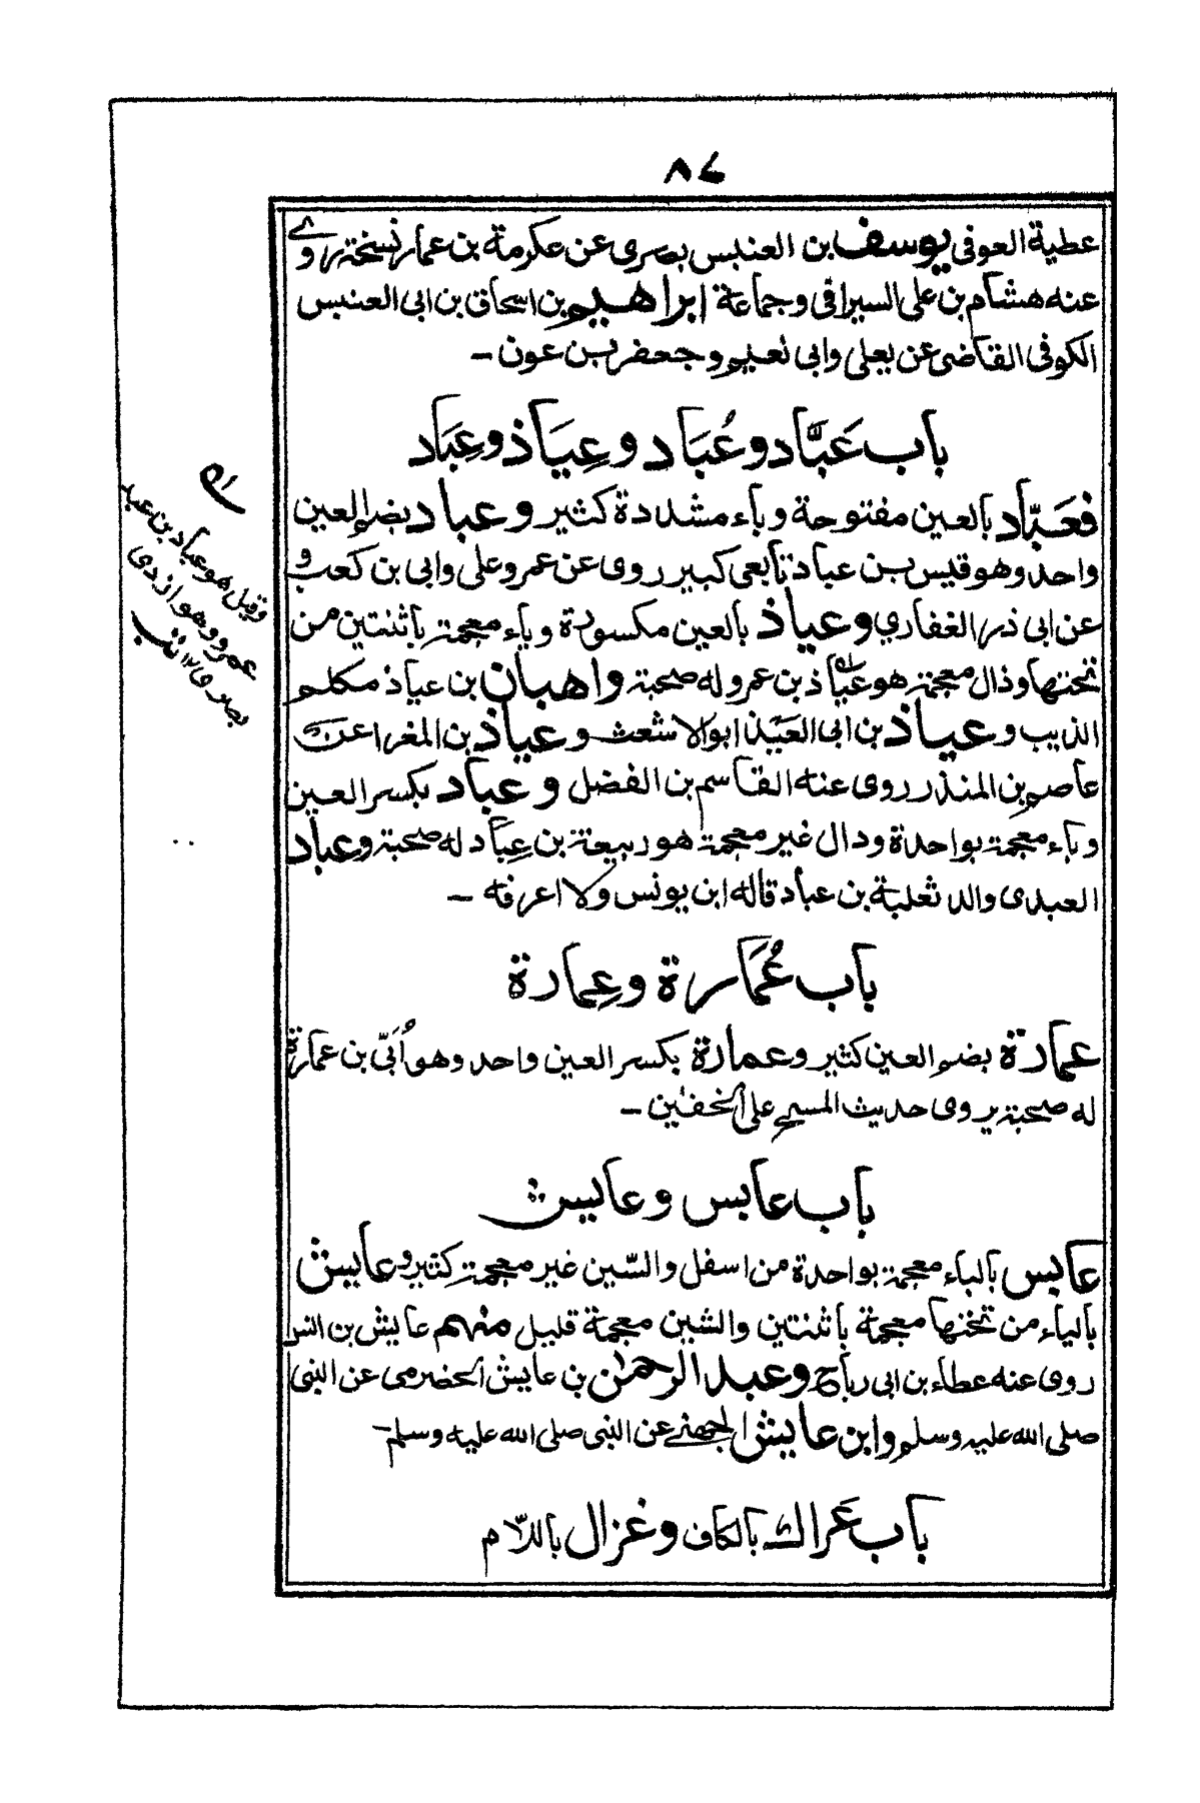 ٨٤
عطية العوفى يوسف بن العنبس بصرى عن عكرمة بن عمار نسخة روى
عنه هشام بن على السيرافى وجماعة ابراهيم بن اسحاق بن ابى العنبس
الكوفى القاضى عن يعلى وابى نعيم وجعفر بن عون -
باب عَبَّاد وعُبَاد وعِيَاذ وعِبَاد
فعَبّاد بالعين مفتوحة وباء مشددة كثير وعباد بضم العين
واحد وهو قيس بن عباد تابعى كبير روى عن عمر وعلى وابى بن كعب و
عن ابى ذر الغفاري وعياذ بالعين مكسورة وياء معجمة باثنتين من
تحتها وذال معجمة هو عياذ بن عمرو له صحبة واهبان بن عياذ مكلم
الذيب وعياذ بن ابى العيذ ابو الاشعث وعياذ بن المغرا عن
عاصم بن المنذر روى عنه القاسم بن الفضل وعباد بكسر العين
وباء معجمة بواحدة ودال غير معجمة هو ربيعة بن عِبَاد له صحبة وعباد
العبدى والد ثعلبة بن عباد قاله ابن يونس ولا اعرفه -
باب عُمَارة وعِمارة
عمارة بضم العين كثير وعمارة بكسر العين واحد وهو اُبَىّ بن عمارة
له صحبة يروى حديث المسح على الخفين -
باب عابس وعايش
عابس بالباء معجمة بواحدة من اسفل والسّين غير معجمة كثير وعايش
بالياء من تحتها معجمة باثنتين والشين معجمة قليل منهم عايش بن انس
روى عنه عطاء بن ابى رباح وعبد الرحمٰن بن عايش الحضرمى عن النبى
صلى الله عليه وسلم وابن عايش الجهنى عن النبى صلى الله عليه وسلم -
باب عَراك بالكاف وغزال باللّام
وقيل هو عباد بن عبد
عمرو وهو ازدى
بصرى ١٢